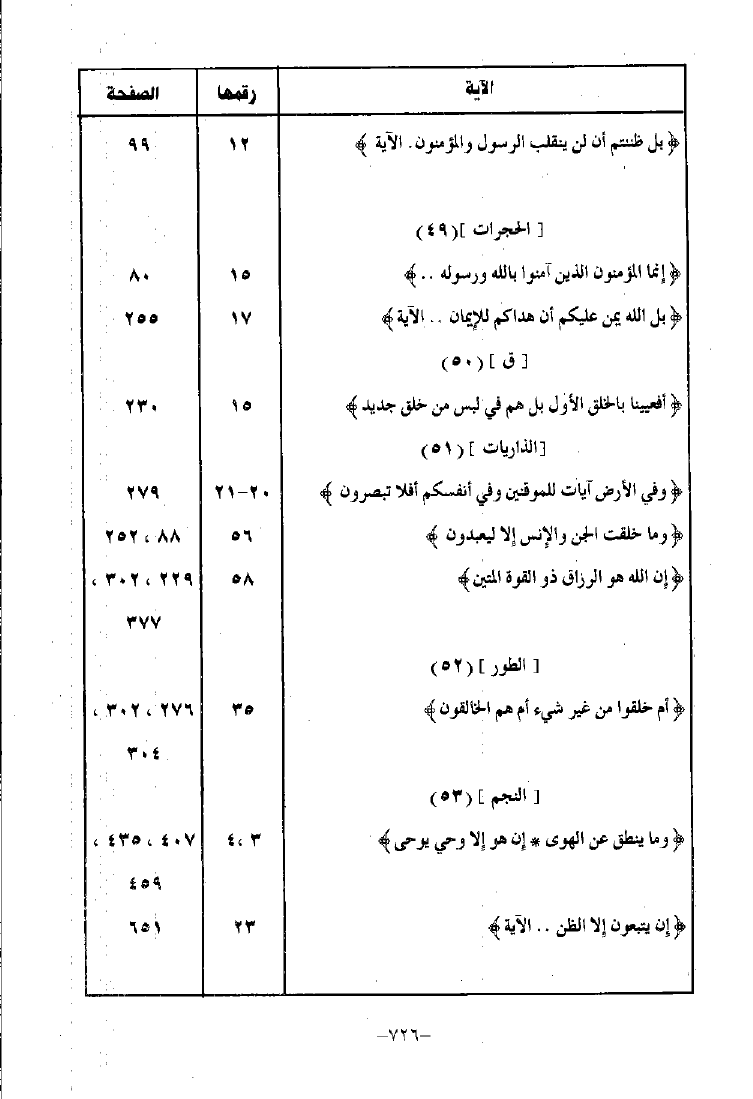 الآية رقمها الصفحة
﴿ بل ظننتم أن لن ينقلب الرسول والمؤمنون. الآية ﴾ ١٢ ٩٩
[ الحجرات ](٤٩)
﴿ إنما المؤمنون الذين آمنوا بالله ورسوله ..﴾ ١٥ ٨٠
﴿ بل الله يمن عليكم أن هداكم للإيمان .. الآية﴾ ١٧ ٢٥٥
[ ق ](٥٠)
﴿ أفعيينا بالخلق الأول بل هم في لبس من خلق جديد﴾ ١٥ ٢٣٠
[الذاريات ](٥١)
﴿ وفي الأرض آيات للموقنين وفي أنفسكم أفلا تبصرون ﴾ ٢٠-٢١ ٢٧٩
﴿ وما خلقت الجن والإنس إلا ليعبدون ﴾ ٥٦ ٨٨ ، ٢٥٢
﴿ إن الله هو الرزاق ذو القوة المتين﴾ ٥٨ ٢٢٩ ، ٣٠٢ ،
٣٧٧
[ الطور ](٥٢)
﴿ أم خلقوا من غير شيء أم هم الخالقون﴾ ٣٥ ٢٧٦ ، ٣٠٢ ،
٣٠٤
[ النجم ](٥٣)
﴿ وما ينطق عن الهوى * إن هو إلا وحي يوحى﴾ ٣ ،٤ ٤٠٧ ، ٤٣٥ ،
٤٥٩
﴿ إن يتبعون إلا الظن .. الآية﴾ ٢٣ ٦٥١
-٧٢٦-